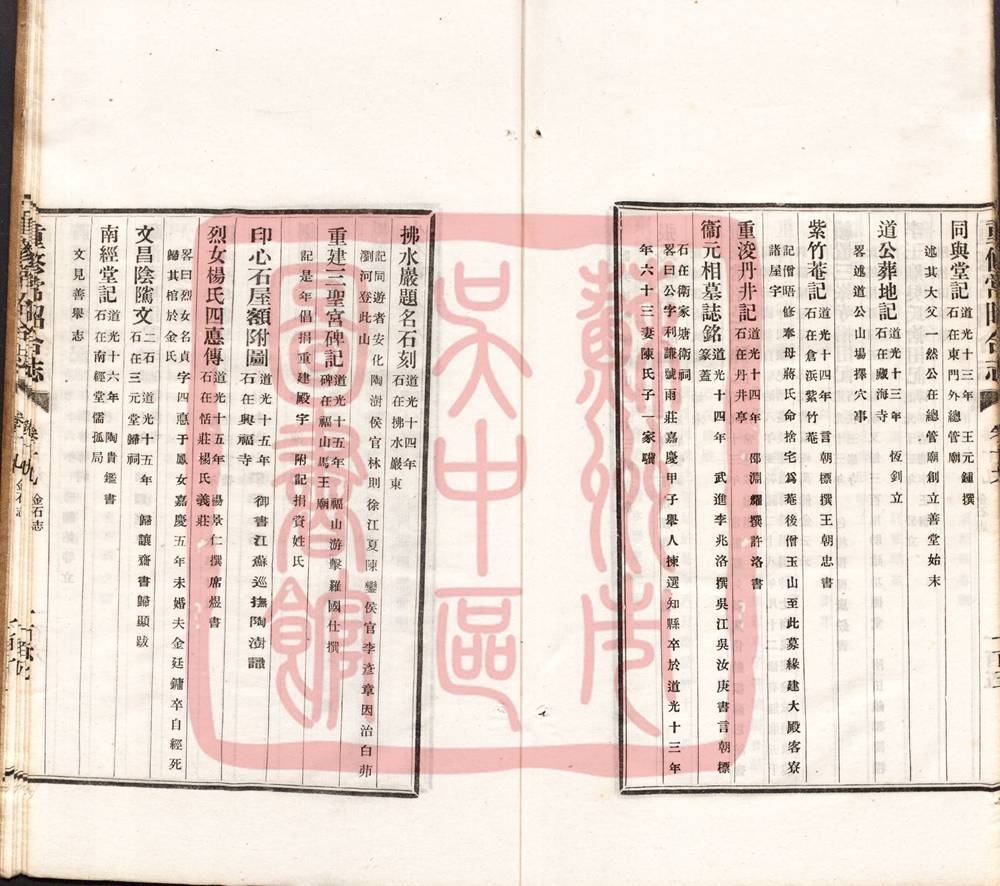 同與堂記 道光十三年 王元鍾撰
石在東門外總管廟
述其大父一然公在總管廟創立善堂始末
道公葬地記 道光十三年 恆釗立
石在藏海寺
畧述道公山場擇穴事
紫竹菴記 道光十四年 言朝標撰王朝忠書
石在倉浜紫竹菴
記僧晤修奉母蔣氏命捨宅為菴後僧玉山至此募緣建大殿客寮
諸屋宇
重浚丹井記 道光十四年 邵淵耀撰許洛書
石在丹井亭
衞元相墓誌銘 道光十四年 武進李兆洛撰吳江吳汝庚書言朝標
篆蓋
石在衛家塘衛祠
畧曰公字利謙號雨莊嘉慶甲子舉人揀選知縣卒於道光十三年
年六十三妻陳氏子一家驥
拂水巖題名石刻 道光十四年
石在拂水巖東
記同遊者安化陶澍侯官林則徐江夏陳鑾侯官李彥章因治白茆
瀏河登此山
重建三聖宮碑記 道光十五年 福山游擊羅國仕撰
碑在福山馬王廟
記是年倡捐重建殿宇 附記捐資姓氏
印心石屋額附圖 道光十五年 御書江蘇巡撫陶澍謹
石在興福寺
烈女楊氏四悳傳 道光十五年 楊景仁撰席煜書
石在恬莊楊氏義莊
畧曰烈女名貞字四悳于鳳女嘉慶五年未婚夫金廷鏞卒自經死
歸其棺於金氏
文昌陰隲文 二石 道光十五年 歸讓齋書歸顯跋
石在三元堂歸祠
南經堂記 道光十六年 陶貴鑑書
石在南經堂儒孤局
文見善舉志
重修常昭合志
金石志
吳中區圖書館